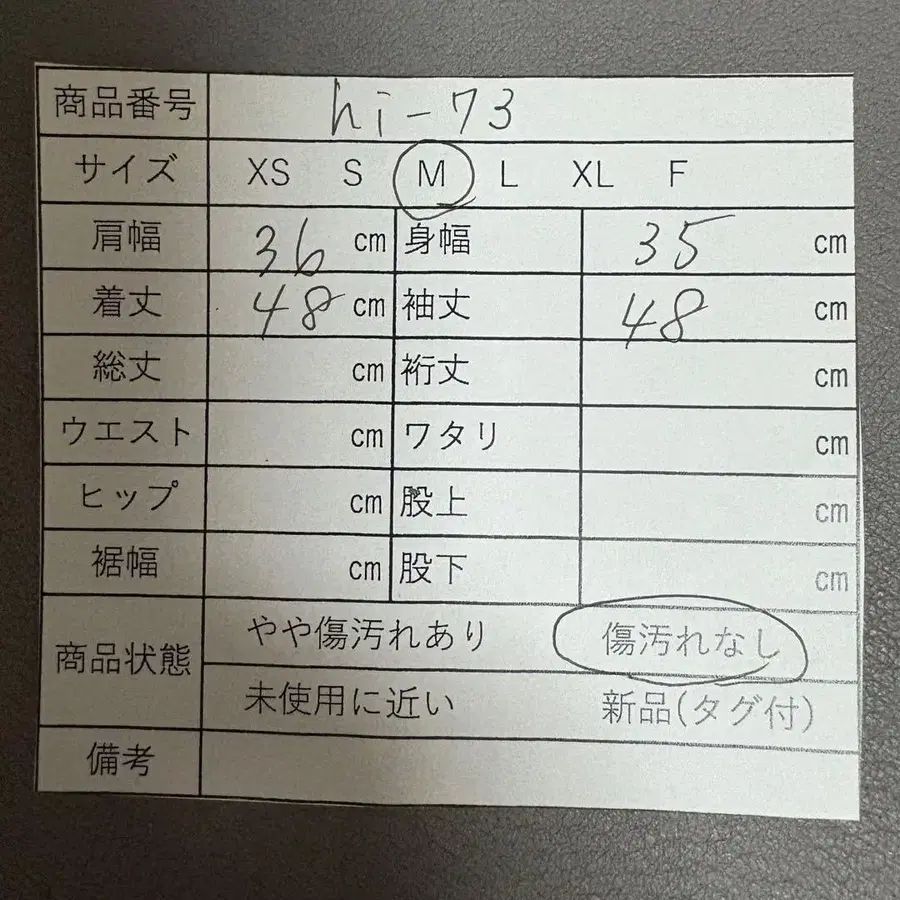 商品番号 hi-73
サイズ XS S M L XL F
肩幅 36 cm 身幅 35 cm
着丈 48 cm 袖丈 48 cm
総丈 cm 裄丈 cm
ウエスト cm ワタリ cm
ヒップ cm 股上 cm
裾幅 cm 股下 cm
商品状態 やや傷汚れあり 傷汚れなし
未使用に近い 新品(タグ付)
備考